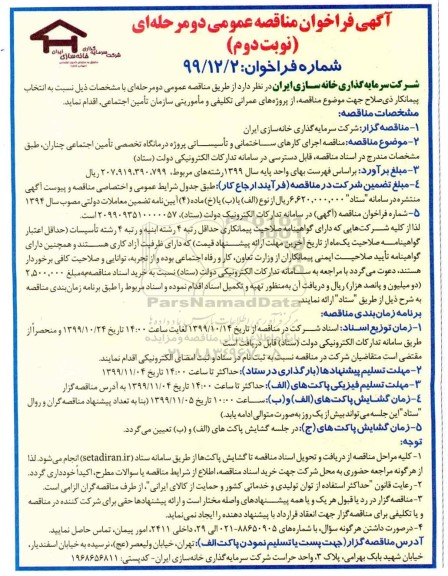 آگهی فراخوان مناقصه عمومی دو مرحله‌ای
(نوبت دوم)
شماره فراخوان: ۹۹/۱۲/۲
شرکت سرمایه گذاری خانه سازی ایران
شرکت سرمایه گذاری خانه سازی ایران در نظر دارد از طریق مناقصه عمومی دو مرحله‌ای با مشخصات ذیل نسبت به انتخاب
پیمانکار ذی‌صلاح جهت موضوع مناقصه، از پروژه‌های عمرانی تکلیفی و مأموریتی سازمان تأمین اجتماعی، اقدام نماید.
مشخصات مناقصه:
۱- مناقصه گزار: شرکت سرمایه گذاری خانه‌سازی ایران
۲- موضوع مناقصه: مناقصه اجرای کارهای ساختمانی و تأسیساتی پروژه درمانگاه تخصصی تأمین اجتماعی چناران، طبق
مشخصات مندرج در اسناد مناقصه، قابل دسترسی در سامانه تدارکات الکترونیکی دولت (ستاد)
۳- مبلغ برآورد: براساس فهرست بهای واحد پایه سال ۱۳۹۹ رشته‌های مربوط، ۲۰۷,۹۱۹,۳۹۰,۷۹۹ ریال
۴- مبلغ تضمین شرکت در مناقصه (فرآیند ارجاع کار): طبق جدول شرایط عمومی و اختصاصی مناقصه و پیوست آگهی
منتشره در سامانه "ستاد" ۶,۶۲۰,۰۰۰,۰۰۰ ریال از نوع (الف) یا (ب) یا (ج) ماده (۴) آیین‌نامه تضمین معاملات دولتی مصوب سال ۱۳۹۴
۵- شماره فراخوان مناقصه (آگهی) در سامانه تدارکات الکترونیکی دولت (ستاد)، ۲۰۹۹۰۹۳۵۱۰۰۰۰۰۵۷ است.
لذا از کلیه شرکت‌هایی که دارای گواهینامه صلاحیت پیمانکاری حداقل رتبه ۴ رشته ابنیه و رتبه ۴ رشته تأسیسات (حداقل اعتبار
گواهینامه صلاحیت یک‌ماه از تاریخ آخرین مهلت ارائه پیشنهاد قیمت) که دارای ظرفیت آزاد کاری هستند و همچنین دارای
گواهینامه تأیید صلاحیت ایمنی پیمانکاران از وزارت تعاون، کار و رفاه اجتماعی بوده و از تجربه، توانایی و صلاحیت کافی برخوردار
هستند، دعوت می‌گردد با مراجعه به سامانه تدارکات الکترونیکی دولت (ستاد) نسبت به خرید اسناد مناقصه به مبلغ ۲,۵۰۰,۰۰۰
(دو میلیون و پانصد هزار) ریال و دریافت آن به‌منظور تهیه و تکمیل اسناد اقدام نموده و اسناد مربوط را طبق برنامه زمان‌بندی مناقصه
به شرح ذیل از طریق "ستاد" ارائه نمایند.
برنامه زمان‌بندی مناقصه:
۱- زمان توزیع اسناد: اسناد شرکت در مناقصه از تاریخ ۱۳۹۹/۱۰/۱۴ لغایت ساعت ۱۴:۰۰ تاریخ ۱۳۹۹/۱۰/۲۴ و منحصراً از
طریق سامانه تدارکات الکترونیکی دولت (ستاد) قابل دریافت است
مقتضی است متقاضیان شرکت در مناقصه نسبت به ثبت نام در ستاد و ثبت امضای الکترونیکی اقدام نمایند.
۲- مهلت تسلیم پیشنهادها (بارگذاری در ستاد): حداکثر تا ساعت ۱۴:۰۰ تاریخ ۱۳۹۹/۱۱/۰۴
۳- مهلت تسلیم فیزیکی پاکت‌های (الف): حداکثر تا ساعت ۱۴:۰۰ تاریخ ۱۳۹۹/۱۱/۰۴ به آدرس مناقصه‌گزار
۴- زمان گشایش پاکت‌های (الف) و (ب): ساعت ۱۰:۰۰ تاریخ ۱۳۹۹/۱۱/۰۵ (بنا به تعداد پیشنهاد مناقصه‌گران و روال
"ستاد" این جلسه می‌تواند بیش از یک روز به‌صورت متوالی ادامه یابد.)
۵- زمان گشایش پاکت‌های (ج): در جلسه گشایش پاکت های (الف) و (ب) تعیین می‌گردد.
توجه:
۱- کلیه مراحل مناقصه از دریافت و تحویل اسناد مناقصه تا گشایش پاکت‌ها از طریق سامانه ستاد (setadiran.ir) انجام می‌شود. لذا
از هرگونه مراجعه حضوری به محل شرکت جهت خرید اسناد مناقصه، اطلاع از شرایط مناقصه یا سوالات مطرح، اکیداً خودداری گردد.
۲- رعایت قانون "حداکثر استفاده از توان تولیدی و خدماتی کشور و حمایت از کالای ایرانی"، از طرف مناقصه‌گران الزامی است.
۳- مناقصه‌گزار در رد یا قبول هر یک و یا همه پیشنهادهای واصله مختار است و ارائه پیشنهادها حقی برای شرکت کننده در مناقصه
و یا تکلیفی برای مناقصه‌گزار جهت انعقاد قرارداد با پیشنهاد دهنده را ایجاد نمی‌نماید.
۴- درصورت داشتن هرگونه سؤال، با شماره‌های ۸۸۶۵۰۹۰۵-۰۲۱ الی ۲۹، داخلی ۲۴۱۱، امور پیمان، تماس حاصل نمایید.
آدرس مناقصه‌گزار (جهت پست یا تسلیم نمودن پاکت الف): تهران، خیابان ولیعصر (عج)، نرسیده به خیابان اسفندیار،
خیابان شهید بابک بهرامی، پلاک ۳، واحد حراست شرکت سرمایه‌گذاری خانه‌سازی ایران- کدپستی: ۱۹۶۸۶۵۶۸۱۱
ParsNamadData